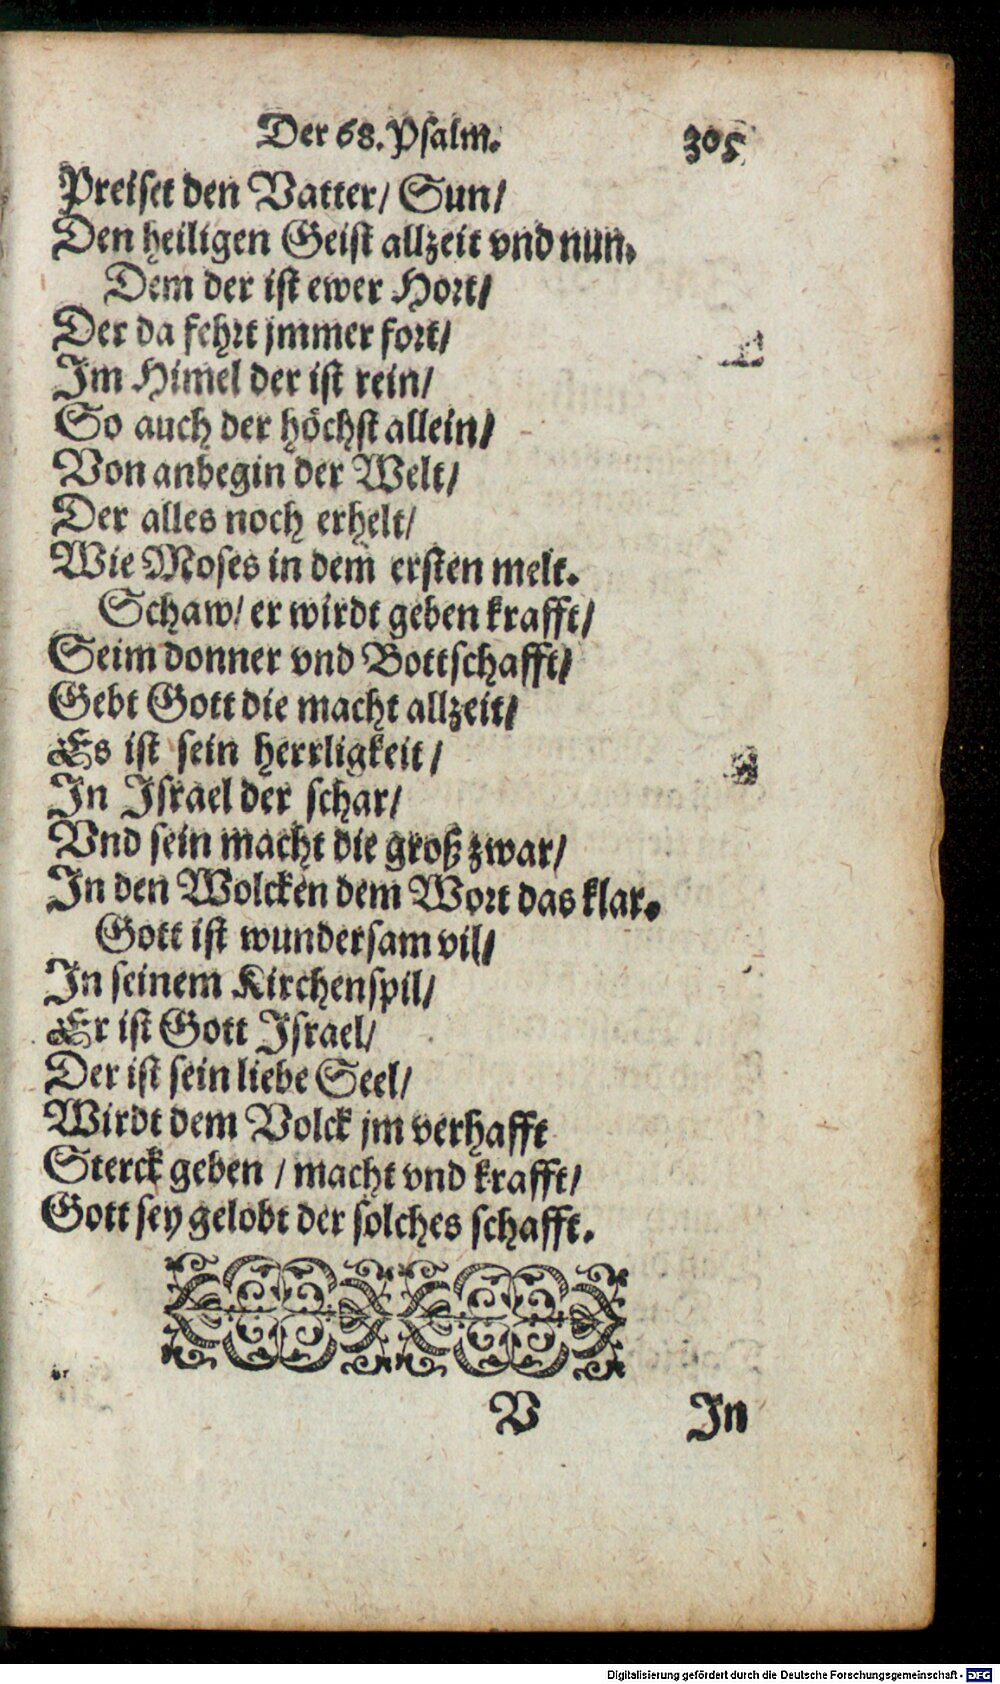 Der 68. Psalm. 305
Preiset den Vatter/ Sun/
Den heiligen Geist allzeit vnd nun.
Dem der ist ewer Hort/
Der da fehrt jmmer fort/
Im Himel der ist rein/
So auch der höchst allein/
Von anbegin der Welt/
Der alles noch erhelt/
Wie Moses in dem ersten melt.
Schaw/ er wirdt geben krafft/
Seim donner vnd Bottschafft/
Gebt Gott die macht allzeit/
Es ist sein herrligkeit/
In Israel der schar/
Vnd sein macht die groß zwar/
In den Wolcken dem Wort das klar.
Gott ist wundersam vil/
In seinem Kirchenspil/
Er ist Gott Israel/
Der ist sein liebe Seel/
Wirdt dem Volck jm verhafft
Sterck geben / macht vnd krafft/
Gott sey gelobt der solches schafft.
V In
Digitalisierung gefördert durch die Deutsche Forschungsgemeinschaft - DFG